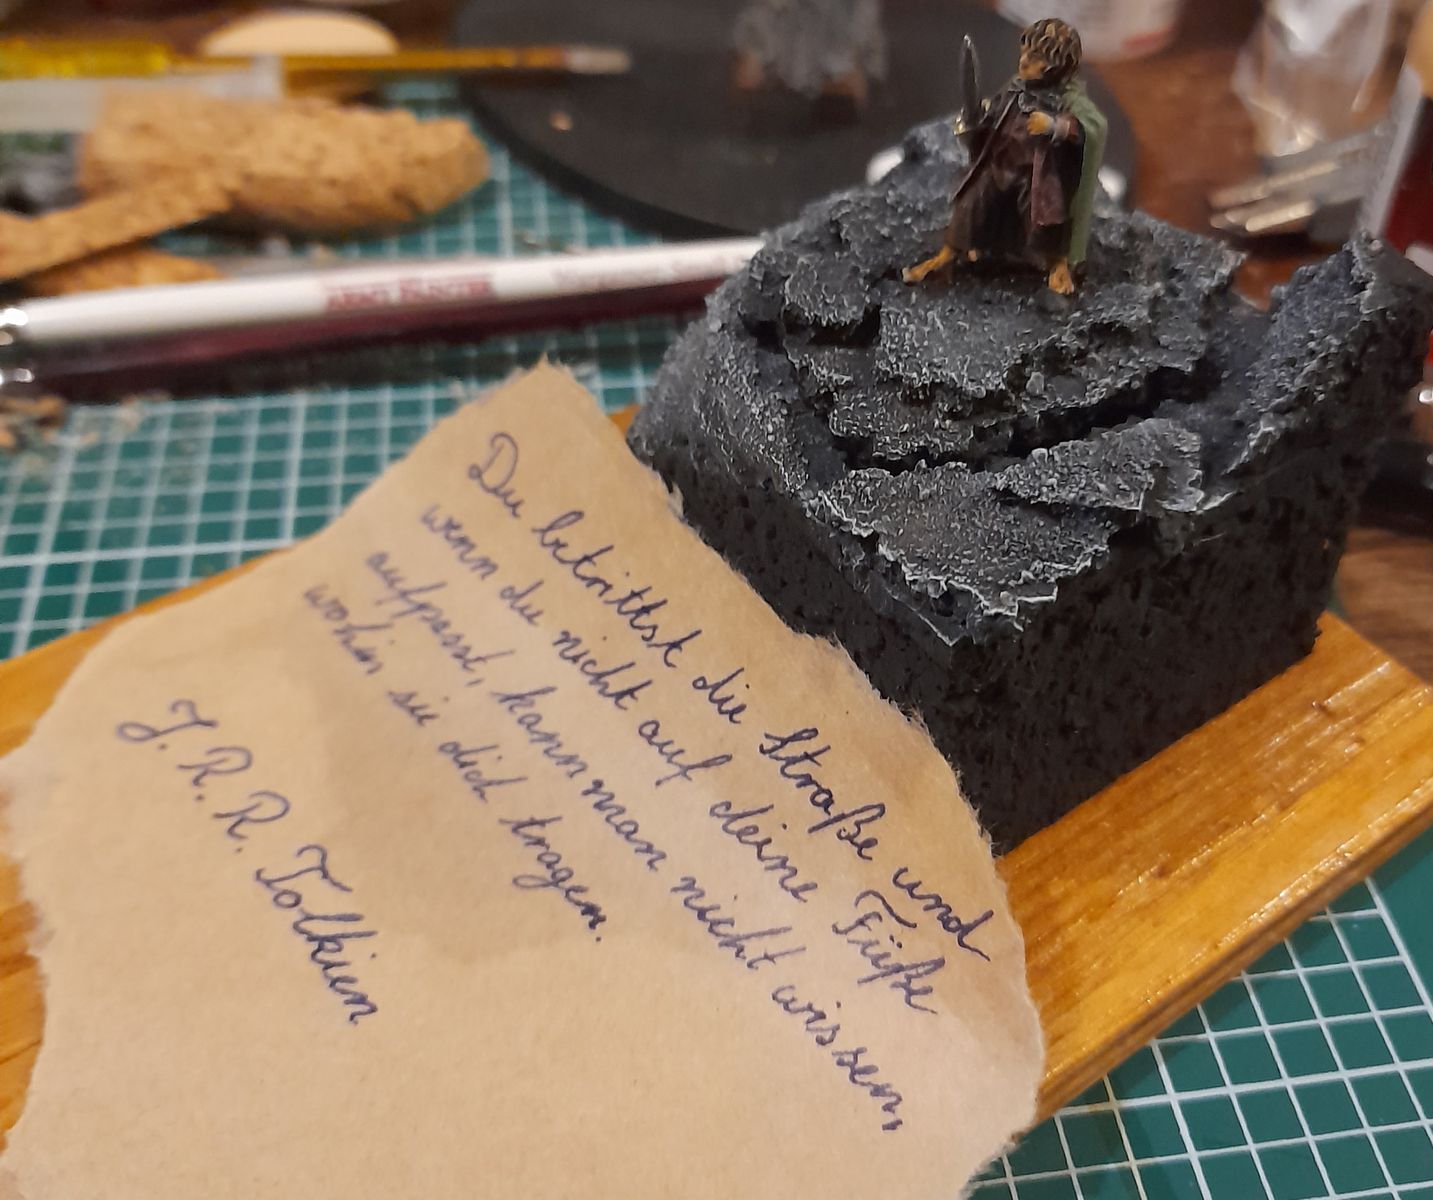 ARMY PAINTER
Du betrittst die Straße und
wenn du nicht auf deine Füße
aufpasst, kann man nicht wissen,
wohin sie dich tragen.
J. R. R. Tolkien